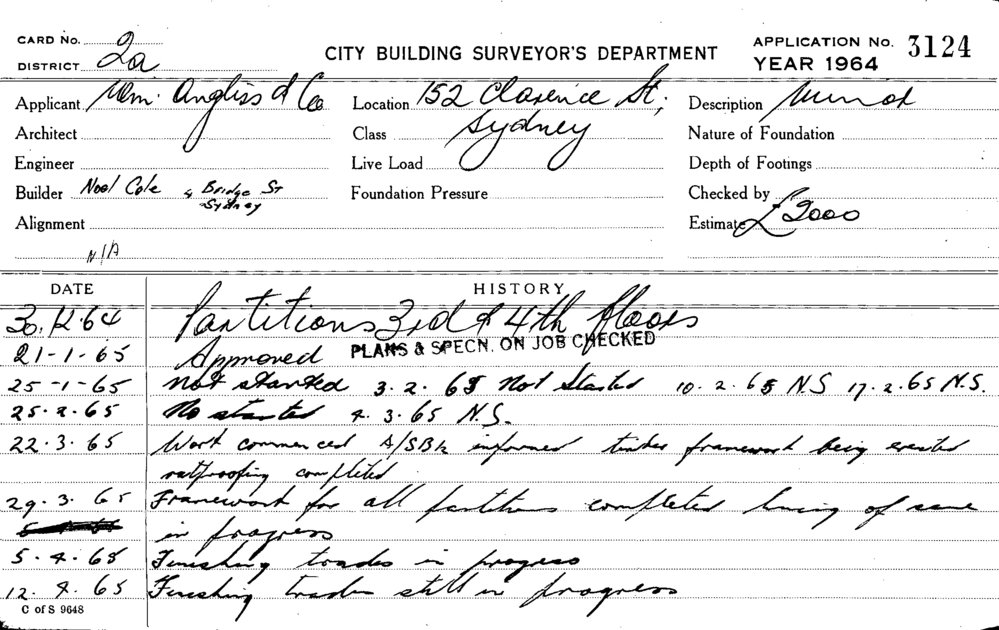 CARD No. 2a
DISTRICT
CITY BUILDING SURVEYOR'S DEPARTMENT
APPLICATION No. 3124
YEAR 1964
Applicant Wm. Angliss & Co
Location 152 Clarence St; Sydney
Description Minor
Architect
Class
Nature of Foundation
Engineer
Live Load
Depth of Footings
Builder Noel Cole 4 Bridge St Sydney
Foundation Pressure
Checked by
Alignment
Estimate £2000
N/A
DATE HISTORY
30.12.64 Partitions 3rd & 4th floors
21-1-65 Approved PLANS & SPECN. ON JOB CHECKED
25-1-65 Not started 3.2.65 Not Started 10.2.65 N.S 17.2.65 N.S.
25.2.65 No started 4.3.65 N.S.
22.3.65 Work commenced A/SBR informed timber framework being erected
ratproofing completed
29.3.65 Framework for all partitions completed lining of same
in progress
5.4.65 Finishing trades in progress
12.4.65 Finishing trades still in progress
C of S 9648